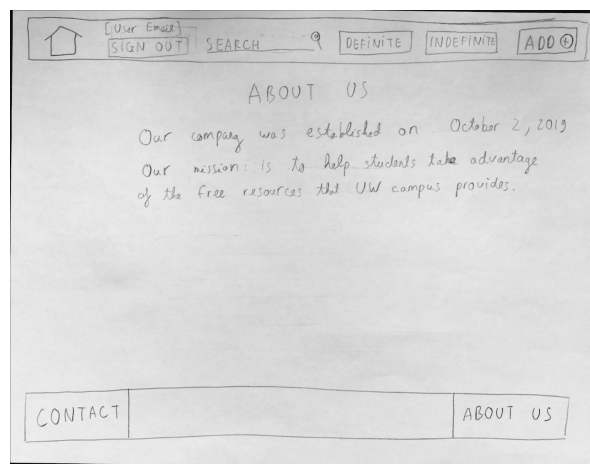 [User Email]
SIGN OUT SEARCH DEFINITE INDEFINITE ADD +
ABOUT US
Our company was established on October 2, 2019
Our mission: is to help students take advantage
of the free resources that UW campus provides.
CONTACT ABOUT US